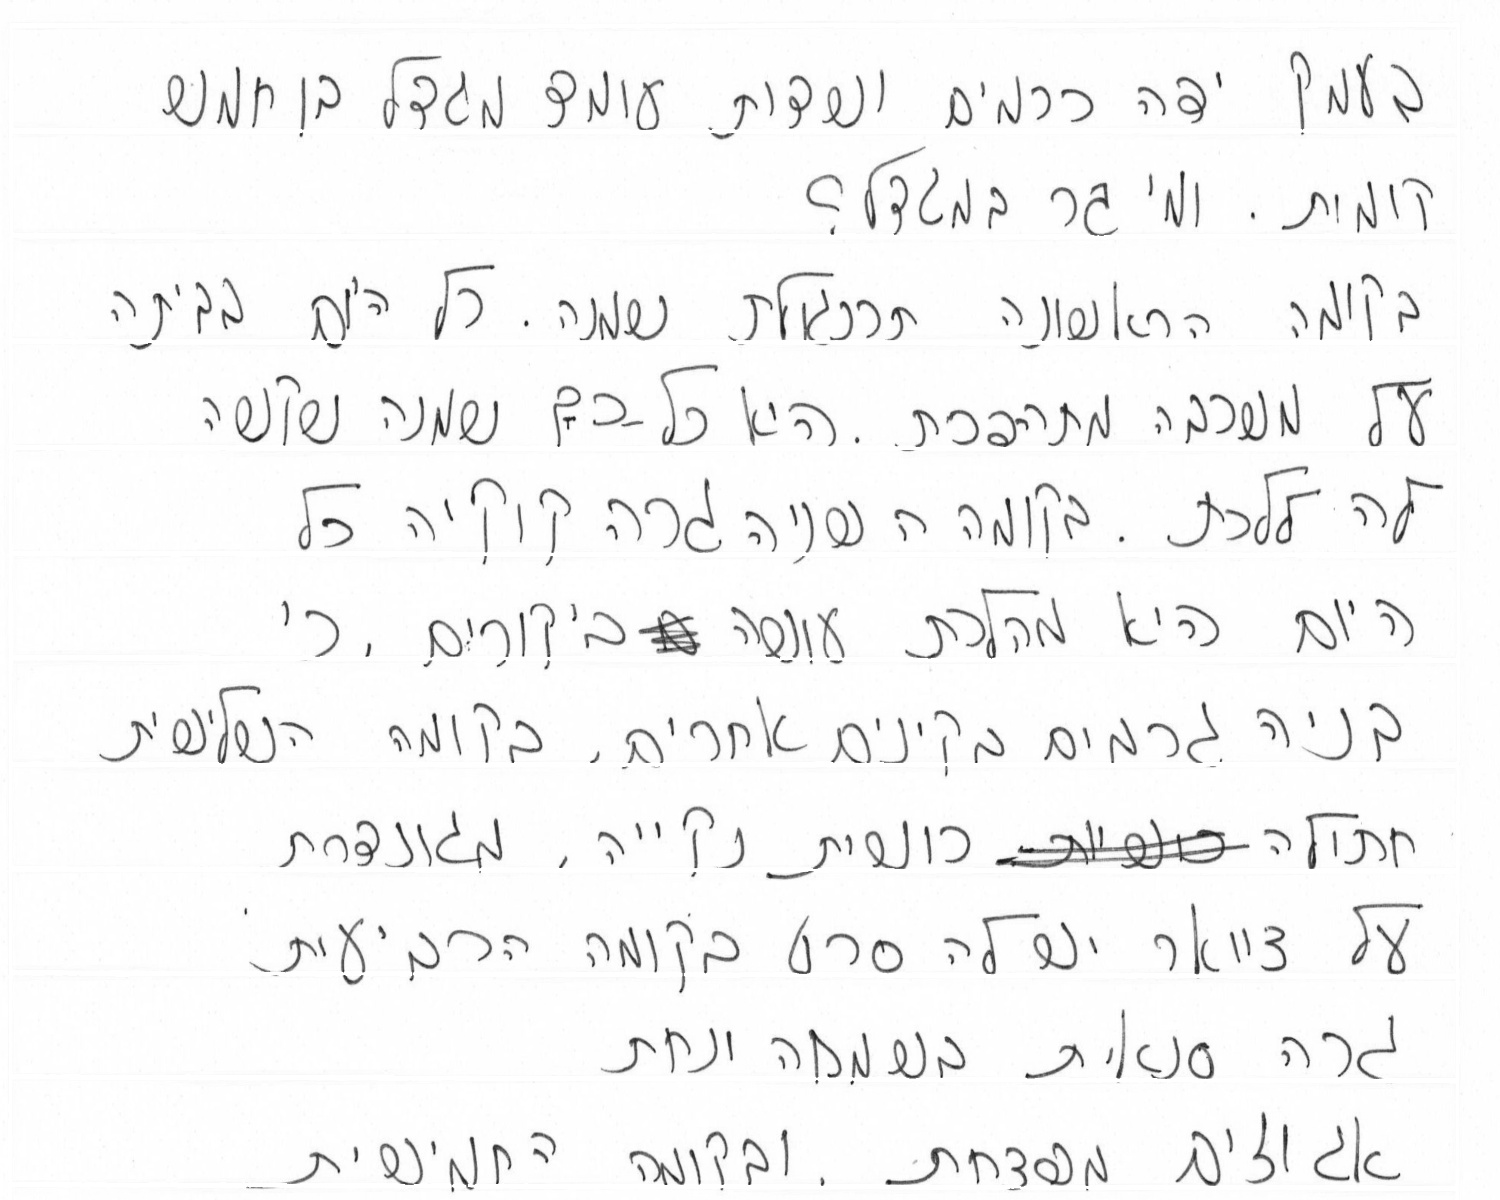 בעמק יפה כרמים ושדות עומד מגדל בן חמש
קומות. ומי גר במגדל?
בקומה הראשונה תרנגולת שמנה. כל היום בביתה
על משכבה מתהפכת. היא כל-כך שמנה שקשה
לה ללכת. בקומה השניה גרה קוקיה כל
היום היא מהלכת עושה ביקורים, כי
בניה גרמים בקינים אחרים, בקומה השלישית
חתולה כושית נקייה, מגונדרת
על צוואר יש לה סרט בקומה הרביעית
גרה סנאית בשמחה ונחת
אגוזים מפצחת. ובקומה החמישית